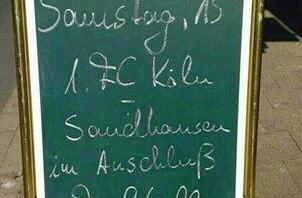 Samstag, 15
1. FC Köln
-
Sandhausen
im Anschluß